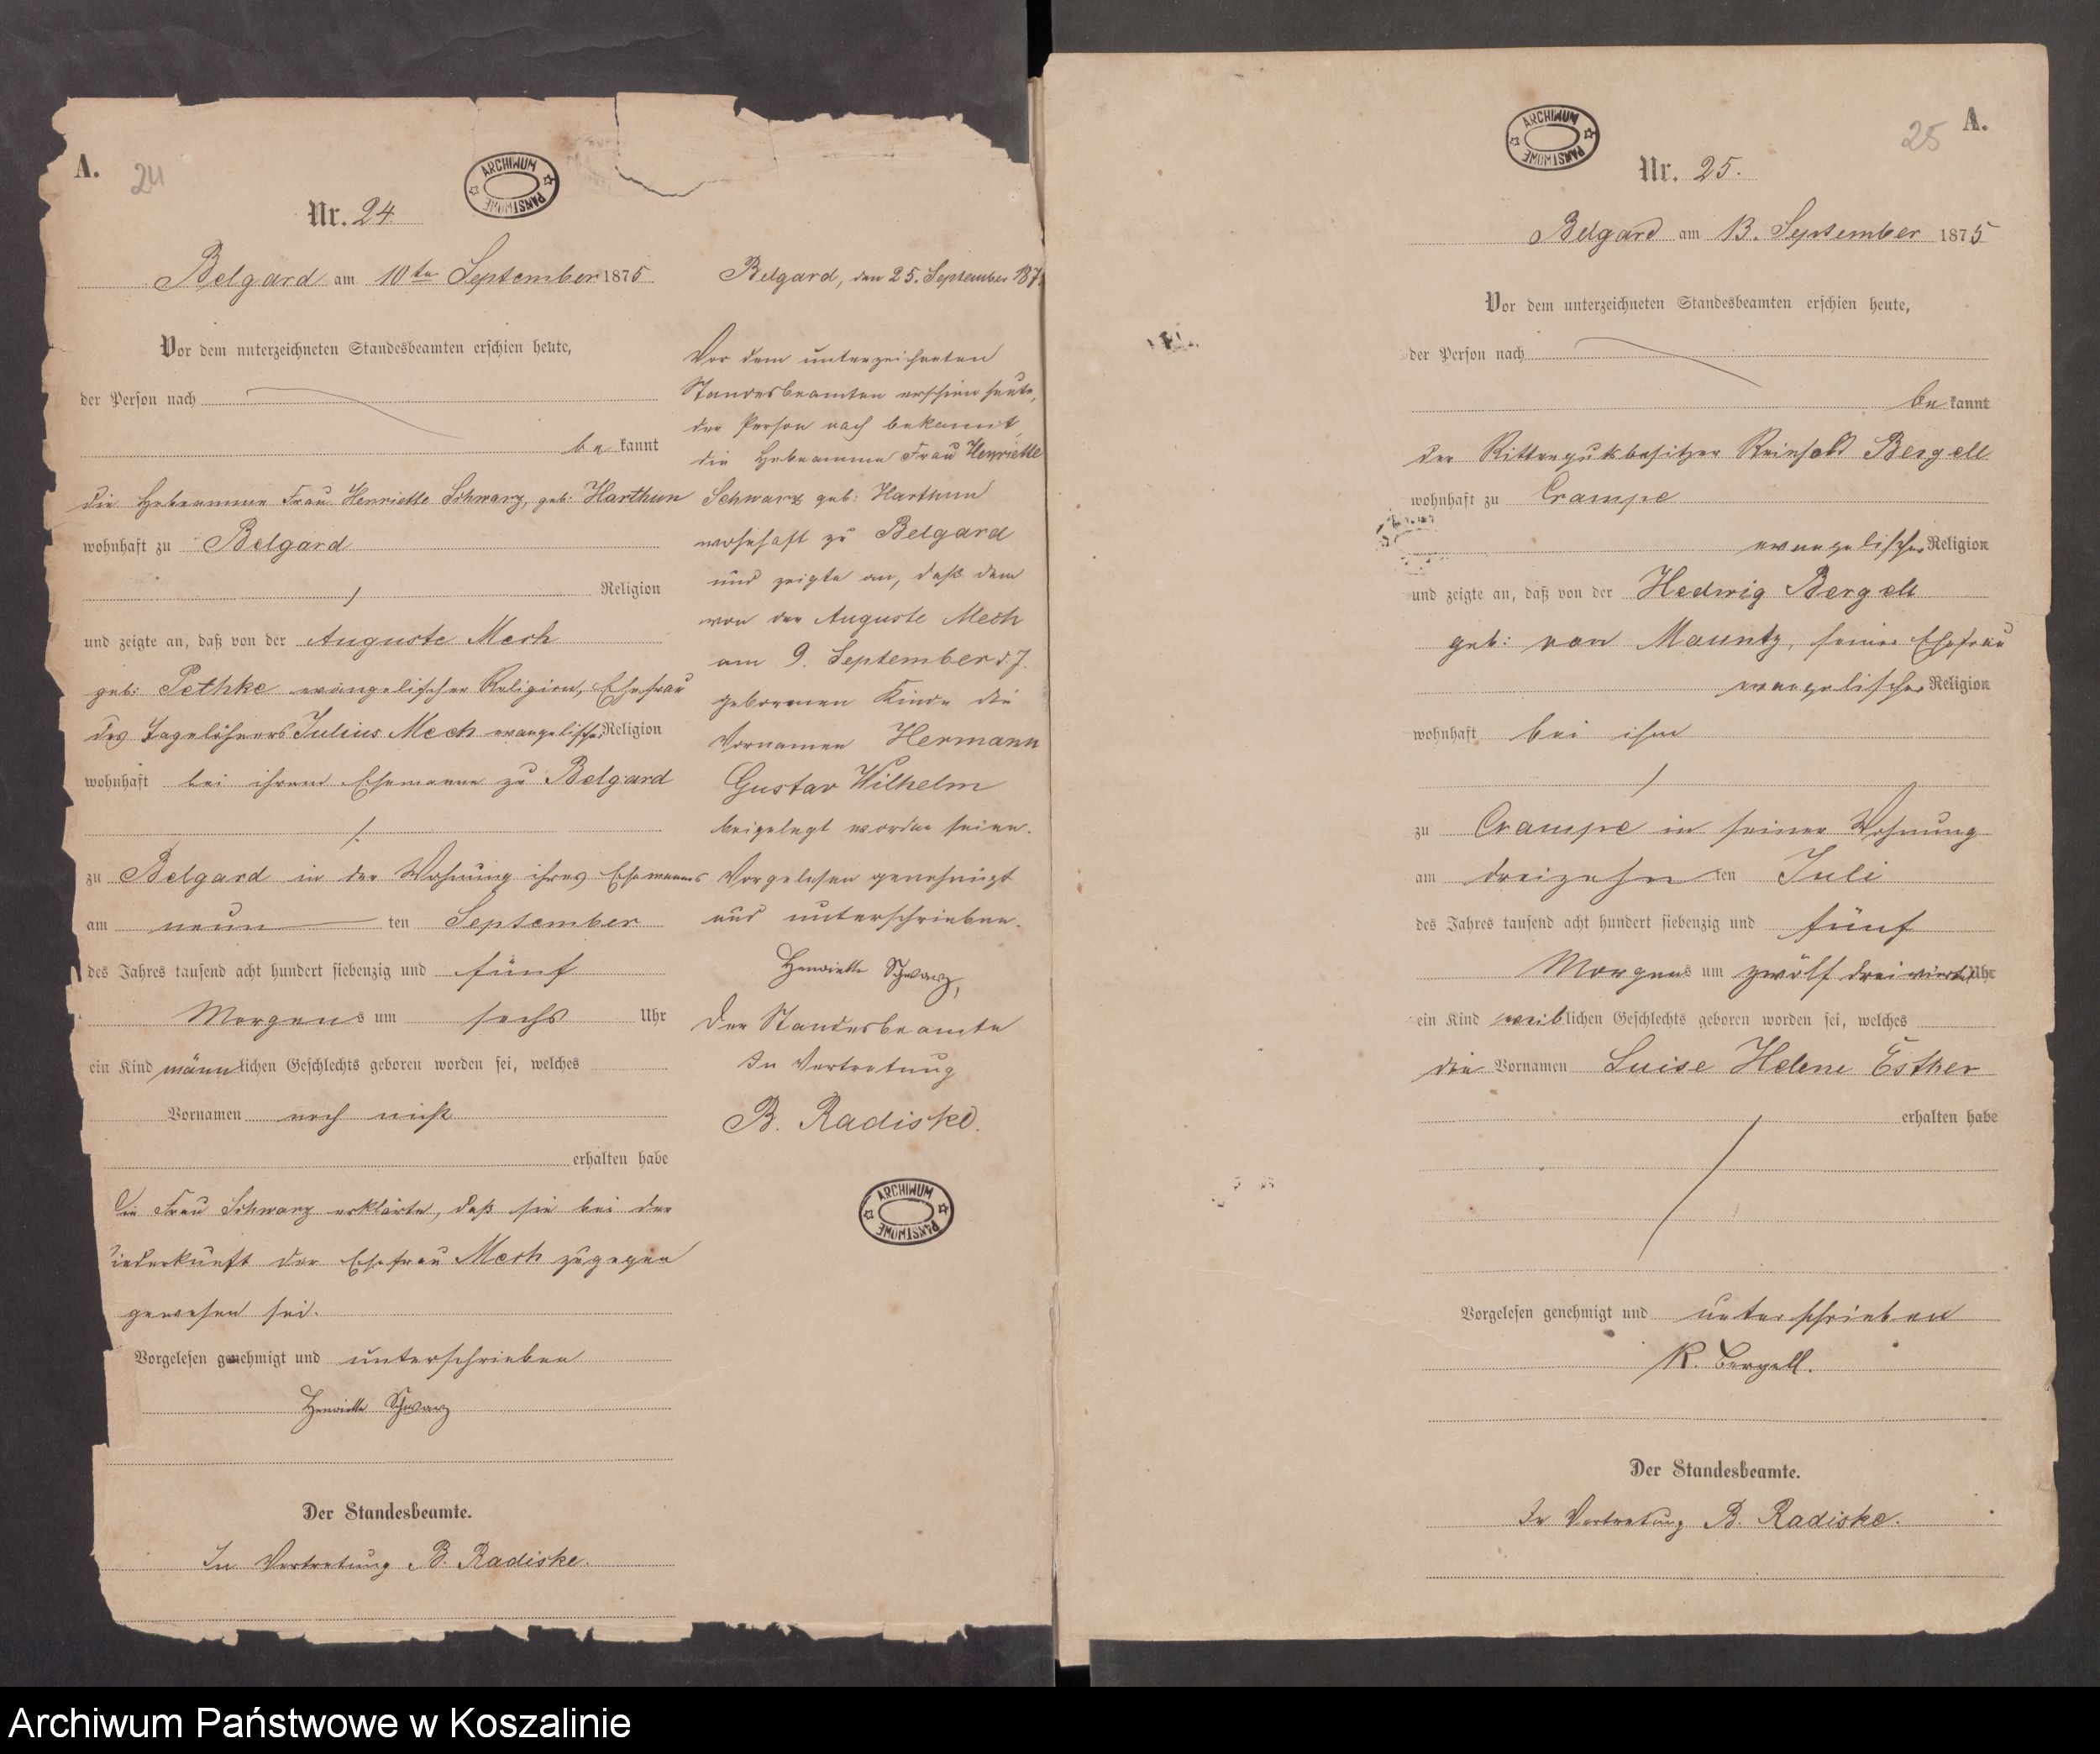 A.
24
ARCHIWUM PAŃSTWOWE
Nr. 24.
Belgard am 10ten September 1875
Vor dem unterzeichneten Standesbeamten erschien heute,
der Person nach
bekannt
die Hebeamme Frau Henriette Schwarz, geb: Harthun
wohnhaft zu Belgard
Religion
und zeigte an, daß von der Auguste Mech
geb: Pethke evangelischer Religion, Ehefrau
des Tagelöhners Julius Mech evangelischer Religion
wohnhaft bei ihrem Ehemanne zu Belgard
zu Belgard in der Wohnung ihres Ehemanns
am neun ten September
des Jahres tausend acht hundert siebenzig und fünf
Morgens um sechs Uhr
ein Kind männlichen Geschlechts geboren worden sei, welches
Vornamen noch nicht
erhalten habe
Die Frau Schwarz erklärte, daß sie bei der
iederkunft der Ehefrau Mech zugegen
gewesen sei.
Vorgelesen genehmigt und unterschrieben
Henriette Schwarz
Der Standesbeamte.
In Vertretung B. Radiske.
Belgard, den 25. September 187
Vor dem unterzeichneten
Standesbeamten erschien heute,
der Person nach bekannt,
die Hebeamme Frau Henriette
Schwarz geb: Harthun
wohnhaft zu Belgard
und zeigte an, daß dem
von der Auguste Mech
am 9. September d. J.
geborenen Kinde die
Vornamen Hermann
Gustav Wilhelm
beigelegt worden seien.
Vorgelesen genehmigt
und unterschrieben.
Henriette Schwarz,
Der Standesbeamte
In Vertretung
B. Radiske.
ARCHIWUM PAŃSTWOWE
A.
25
ARCHIWUM PAŃSTWOWE
Nr. 25.
Belgard am 13. September 1875
Vor dem unterzeichneten Standesbeamten erschien heute,
der Person nach
bekannt
der Rittergutsbesitzer Reinhold Bergell
wohnhaft zu Crampe
evangelischer Religion
und zeigte an, daß von der Hedwig Bergell
geb: von Mauntz, seiner Ehefrau
evangelischer Religion
wohnhaft bei ihm
zu Crampe in seiner Wohnung
am dreizehn ten Juli
des Jahres tausend acht hundert siebenzig und fünf
Morgens um zwölf dreiviertel Uhr
ein Kind weiblichen Geschlechts geboren worden sei, welches
die Vornamen Luise Helene Esther
erhalten habe
Vorgelesen genehmigt und unterschrieben
R. Bergell.
Der Standesbeamte.
In Vertretung B. Radiske.
Archiwum Państwowe w Koszalinie